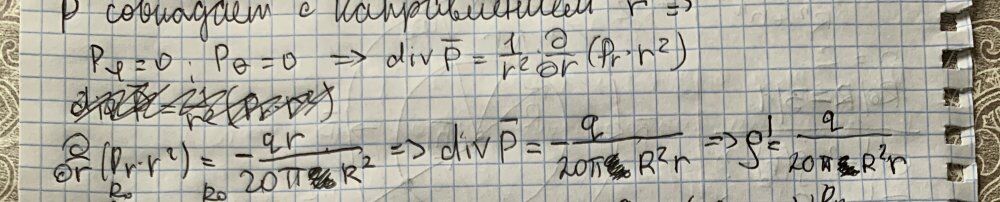 P совпадает с направлением r =>
P_φ=0; P_θ=0 => div P̄ = 1/r² ∂/∂r (P_r·r²)
∂/∂r (P_r·r²) = -qr/20πR² => div P̄ = -q/20πR²r => ρ' = q/20πR²r
R₀ R₀